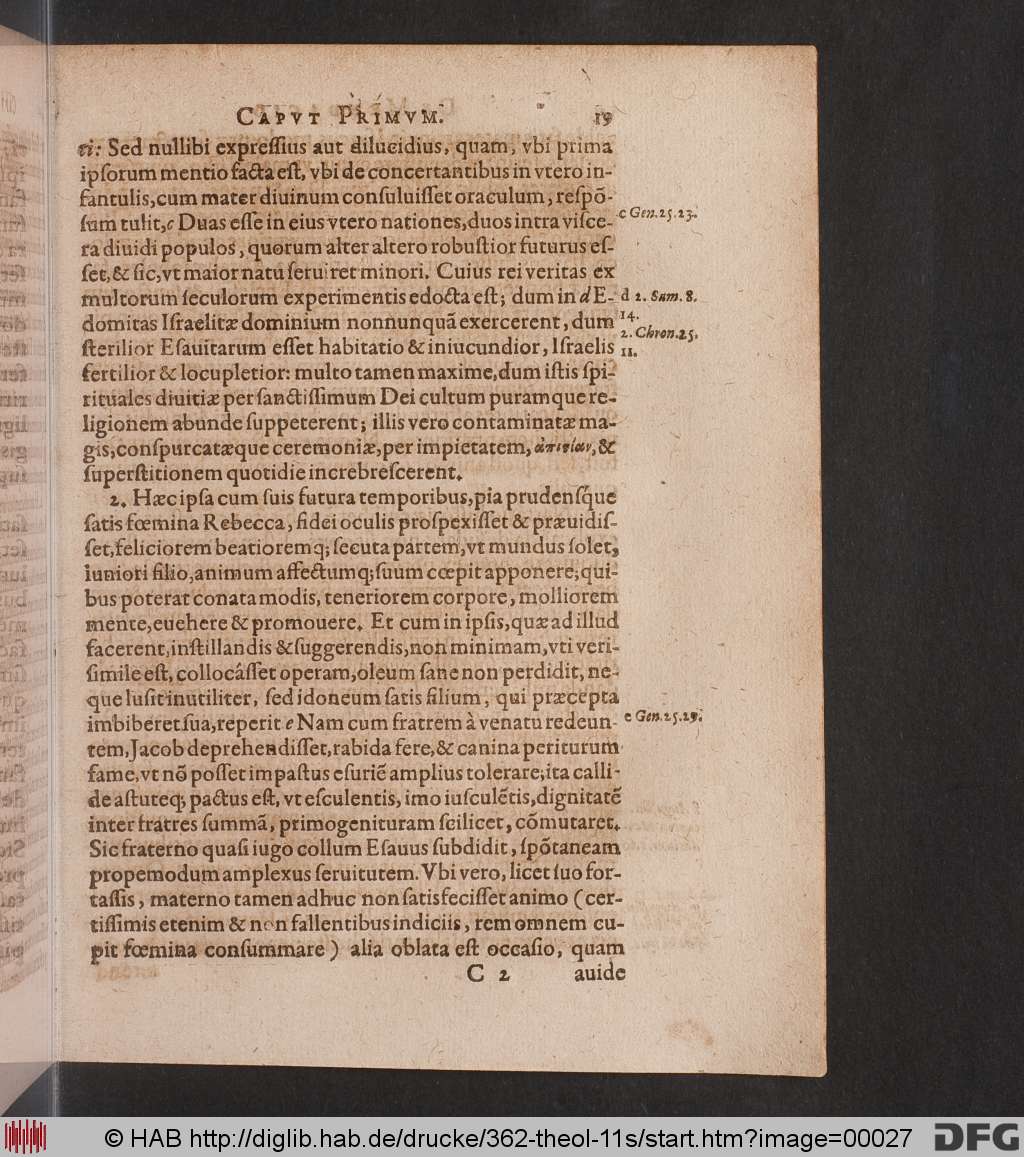 CAPVT PRIMVM. 19
ti: Sed nullibi expreſſius aut dilucidius, quam, vbi prima
ipſorum mentio facta eſt, vbi de concertantibus in vtero in-
fantulis, cum mater diuinum conſuluiſſet oraculum, reſpõ-
ſum tulit, c Duas eſſe in eius vtero nationes, duos intra viſce- c Gen. 25. 23.
ra diuidi populos, quorum alter altero robuſtior futurus eſ-
ſet, & ſic, vt maior natu ſeruiret minori. Cuius rei veritas ex
multorum ſeculorum experimentis edocta eſt; dum in d E- d 2. Sam. 8.
domitas Iſraelitæ dominium nonnunquã exercerent, dum 14.
2. Chron. 25.
ſterilior Eſauitarum eſſet habitatio & iniucundior, Iſraelis 11.
fertilior & locupletior: multo tamen maxime, dum iſtis ſpi-
rituales diuitiæ per ſanctiſſimum Dei cultum puramque re-
ligionem abunde ſuppeterent; illis vero contaminatæ ma-
gis, conſpurcatæque ceremoniæ, per impietatem, ἀπιςίαν, &
ſuperſtitionem quotidie increbreſcerent.
2. Hæc ipſa cum ſuis futura temporibus, pia prudenſque
ſatis fœmina Rebecca, fidei oculis proſpexiſſet & præuidiſ-
ſet, feliciorem beatioremq; ſecuta partem, vt mundus ſolet,
iuniori filio, animum affectumq; ſuum cœpit apponere; qui-
bus poterat conata modis, teneriorem corpore, molliorem
mente, euehere & promouere. Et cum in ipſis, quæ ad illud
facerent, inſtillandis & ſuggerendis, non minimam, vti veri-
ſimile eſt, collocáſſet operam, oleum ſane non perdidit, ne-
que luſit inutiliter, ſed idoneum ſatis filium, qui præcepta
imbiberet ſua, reperit e Nam cum fratrem à venatu redeun- e Gen. 25. 29.
tem, Jacob deprehendiſſet, rabida fere, & canina periturum
fame, vt nõ poſſet impaſtus eſuriẽ amplius tolerare; ita calli-
de aſtuteq; pactus eſt, vt eſculentis, imo iuſculẽtis, dignitatẽ
inter fratres ſummã, primogenituram ſcilicet, cõmutaret.
Sic fraterno quaſi iugo collum Eſauus ſubdidit, ſpõtaneam
propemodum amplexus ſeruitutem. Vbi vero, licet ſuo for-
taſſis, materno tamen adhuc non ſatisfeciſſet animo (cer-
tiſſimis etenim & non fallentibus indiciis, rem omnem cu-
pit fœmina conſummare) alia oblata eſt occaſio, quam
C 2 auide
© HAB http://diglib.hab.de/drucke/362-theol-11s/start.htm?image=00027 DFG